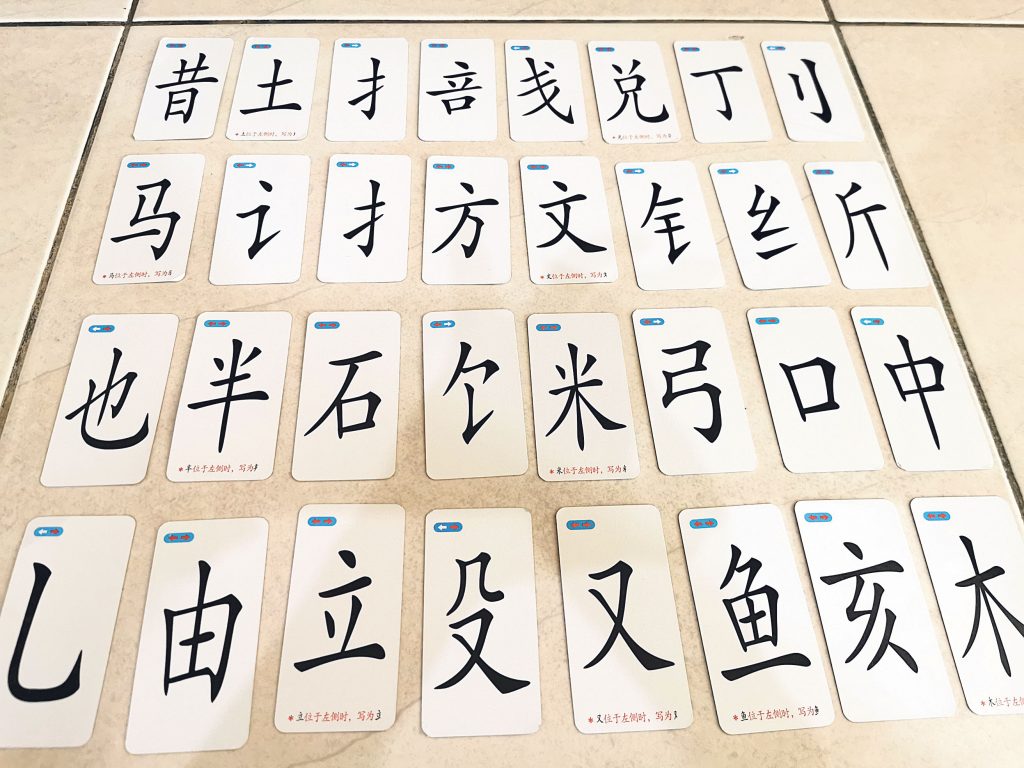 昔 土 扌 咅 戋 兑 丁 刂
*土位于左侧时,写为
*兑位于左侧时,写为
马 讠 扌 方 文 钅 纟 斤
*马位于左侧时,写为
*文位于左侧时,写为
也 半 石 饣 米 弓 口 中
*半位于左侧时,写为
*米位于左侧时,写为
乚 由 立 殳 又 鱼 亥 木
*立位于左侧时,写为
*又位于左侧时,写为
*鱼位于左侧时,写为
*木位于左侧